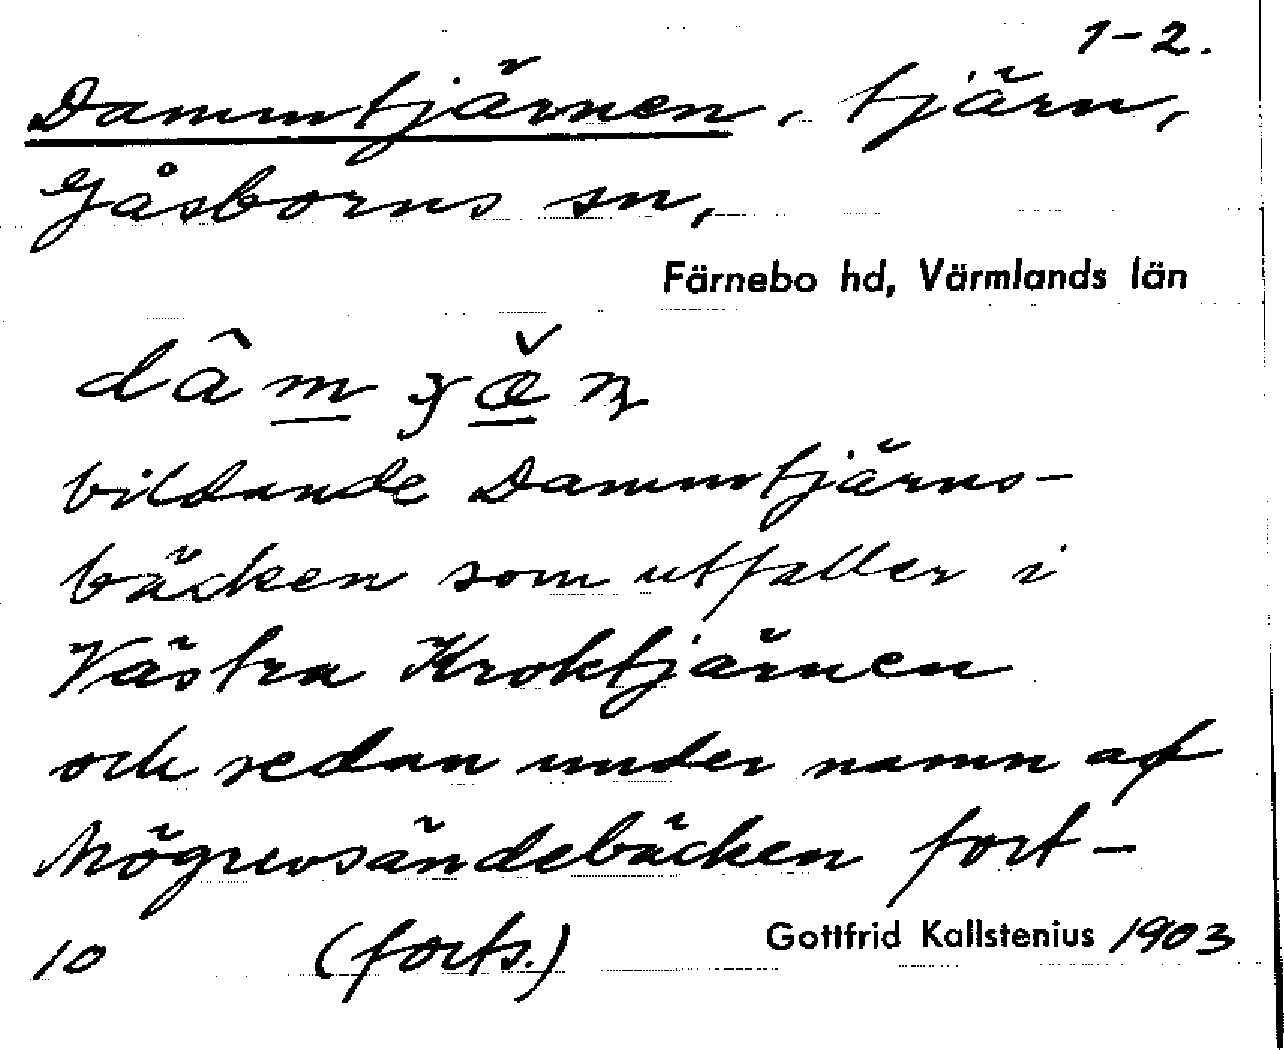 1-2.
Dammtjärnen, tjärn,
Gåsborns sn,
Färnebo hd, Värmlands län
bildande Dammtjärns-
bäcken som utfaller i
Västra Kroktjärnen
och sedan under namn af
Mögruvsändebäcken fort-
10 (forts.) Gottfrid Kallstenius 1903